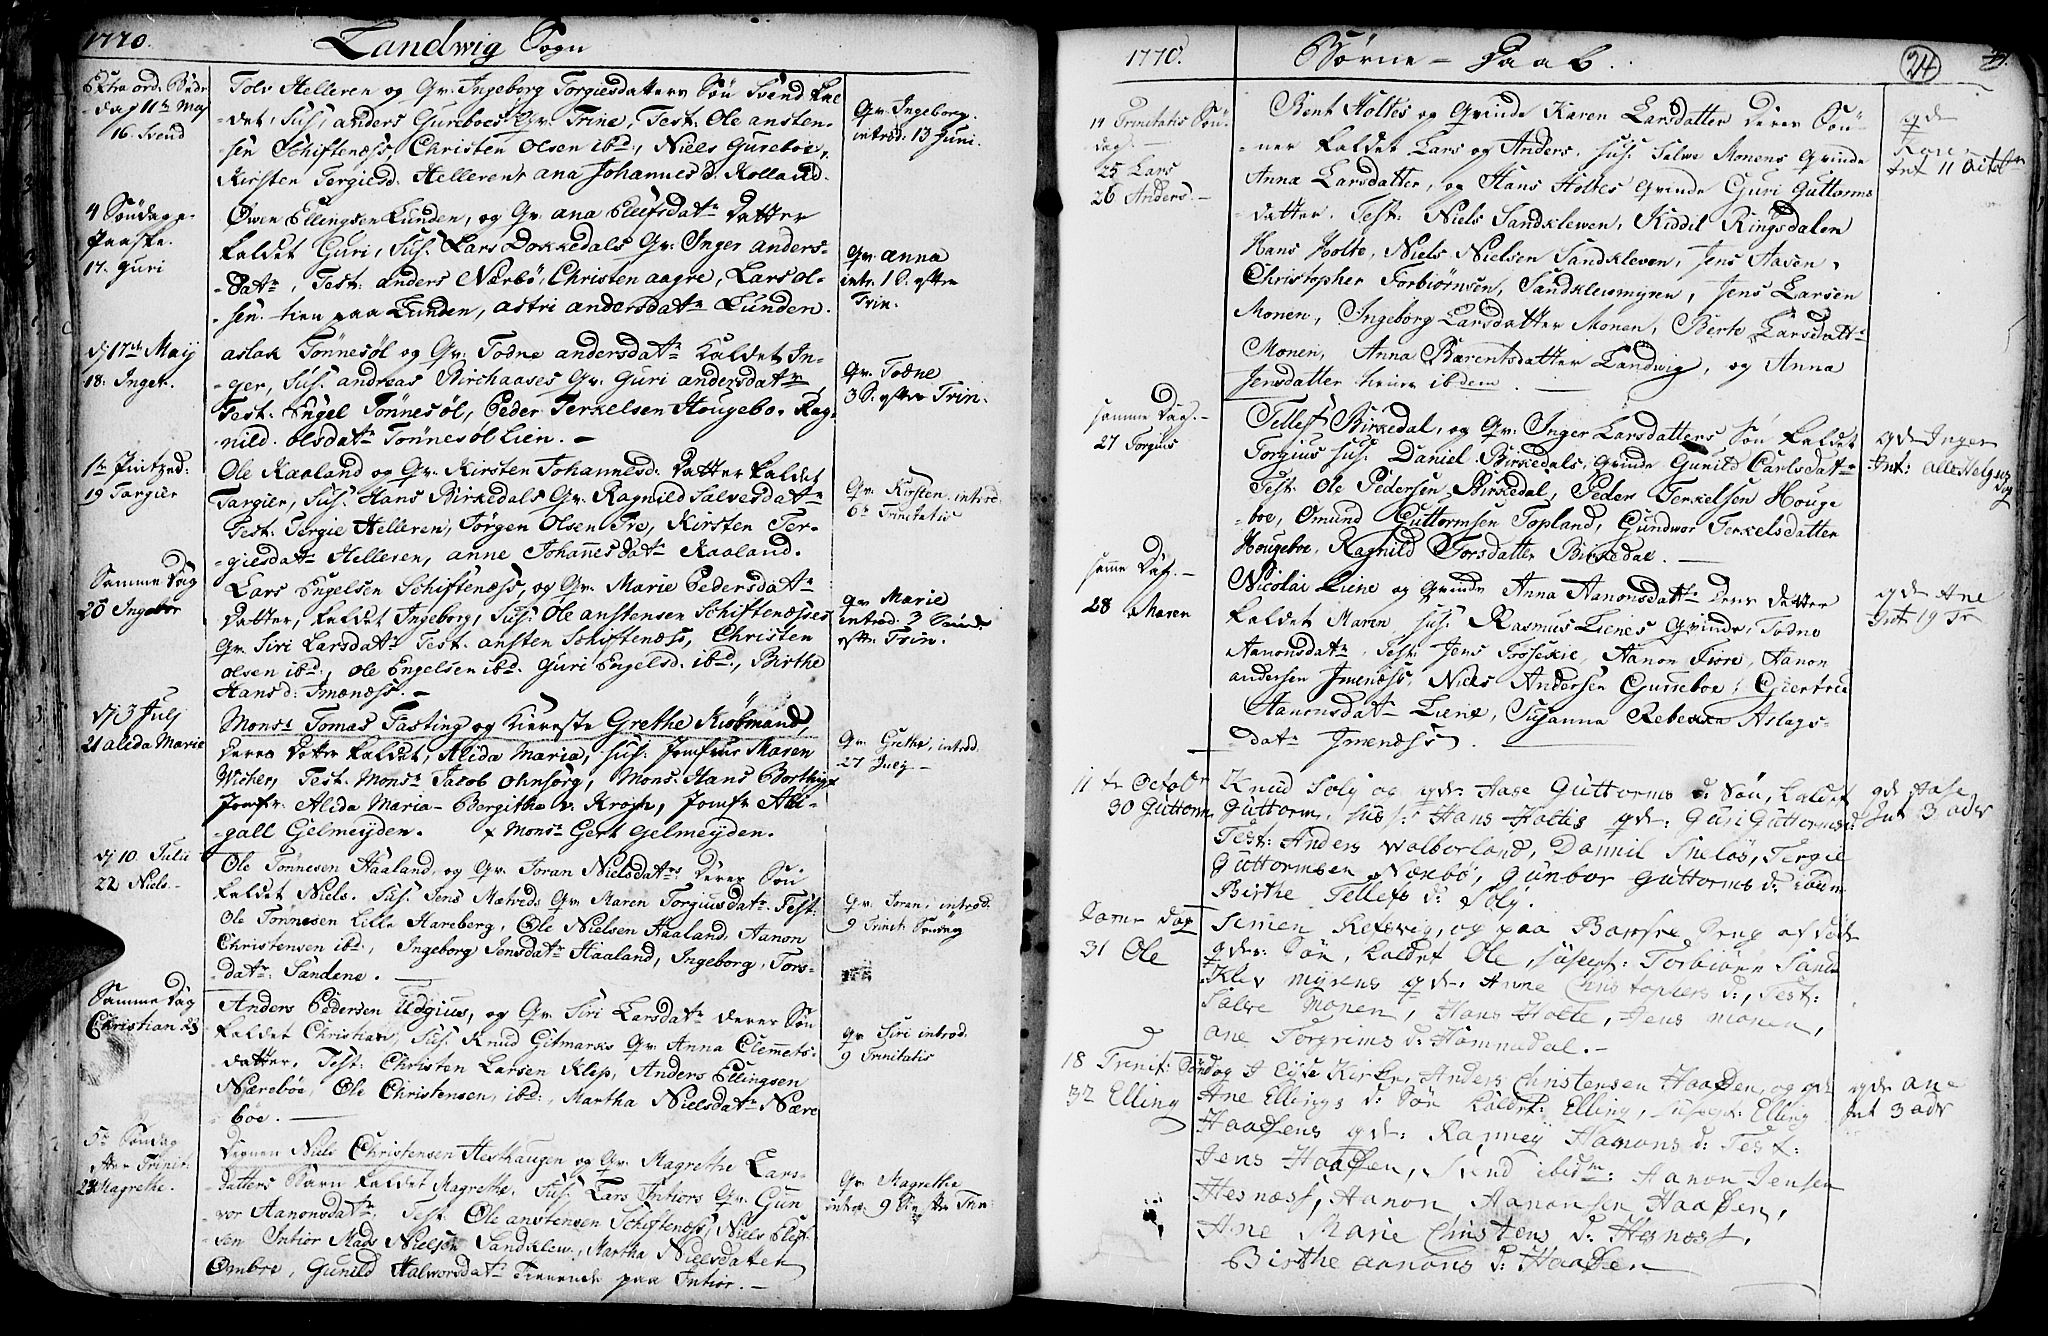 1770. Landwig Sogn
Extra ord. Bede
dag 11te May
16. Svend
Tolv Helleren og Qv. Ingeborg Torgiesdatters Søn Svend kal
det, Sus. anders Gureboes Qv. Trine, Test. Ole ansten-
sen Schiftenæss, Christen Olsen ibd., Niels Gurebøe,
Kirsten Tergiesd. Helleren, ana Johannesd. Rolland.
Qv. Ingeborg
introd. 13 Juni.
4 Søndag p.
Paaske.
17. Guri
Öven Ellingsen Lunden, og Qv. ana Elefsdatr Datter
kaldet Guri, Sus. Lars Dokkedals Qv. Inger anders-
datr, Test: anders Nærbö, Christen aagre, Lars ol-
sen tien paa Lunden, astri andersdatr Lunden.
Qv. anna
intr. 1 S. efter
Trin.
D. 17de Maij
18. Inger.
aslak Tönnesöl og Qv. Todne andersdatr kaldet In-
ger, Sus. andreas Birchaases Qv. Guri andersdatr,
Test. Engel Tönnesöl, Peder Terkelsen Hougeboe Rag-
nild olsdatr Tönnesöl Lien. -
Qv. Todne
3 S. efter Trin.
1te Pintzed:
19 Targier
Ole Raaland og Qv. Kirsten Johannesd. Datter kaldet
Targier, Sus. Hans Birkedals Qv. Ragnild Salvesdatr
Test. Tergie Helleren, Jörgen Olsen Tre, Kirsten Ter-
giesdatr Helleren, anne Johannesdatr Raaland.
Qv. Kirsten introd.
6te Trinitatis
Samme Dag
20 Ingebor
Lars Engelsen Schiftenæss, og Qv. Marie Pedersdatr
Datter, kaldet Ingeborg, Sus: Ole anstensen Schiftenæsses
Qv. Siri Larsdatr Test. ansten Schiftenæss, Christen
olsen ibd., ole Engelsen ibd. Guri Engelsd. ibd., Birthe
Hansd: Imenæss. -
Qv Marie
introd. 3 Sönd.
eftr. Trin.
D. 3 Julj
21 Aleda Marie
Monsr Tomas Fasting og Kiereste Grethe Kiöbmand,
Deres Datter kaldet, Alida Maria, Sus. Jomfrue Maren
Wicher, Test. Monsr Jacob Ohnsorg, Mons. Hans Borthig x
Jomfr. Alida Maria - Bergitha v. Krogh, Jomfr Abi-
gall Gelmeyden. x Monsr Gert Gelmeyden.
Qv. Grethe, introd.
27 July -
D. 10. Julii
22 Niels.
Ole Tönnesen Haaland, og Qv Joran Nielsdatrs Deres Søn
kaldet Niels. Sus. Jens Mælvds Qv. Maren Torgiusdatr Test:
Ole Tonnesen Lille Hareberg, Ole Nielsen Haaland, Aanon
Christensen ibd., Ingeborg Jensdatr Haaland, Ingeborg Tors-
datr: Sandene.
Qv. Joran, introd.
9 Trinit. Søndag
Samme Dag
Christian 23
Anders Pedersen Udgius, og Qv Siri Larsdatr deres Søn
kaldet Christian, Sus. Knud Gitmarks Qv. Anna Clemets-
datter. Test: Christen Larsen Klep, Anders Ellingsen
Nærebøe, Ole Christensen, ibd:, Martha Nielsdatr Nære
boe.
Qv. Siri introd.
9 Trinitatis
5te Søndag
efter Trinit.
24 Magrethe.
Degnen Niels Christensen Hesthaugen og Qv. Magrethe Lars-
datters Barn kaldet Magrethe. Sus. Lars Intiors Qv. Gun
vor Aanonsdatr Test. Ole anstensen Schiftenæss, Niels Elef-
sen Intior Mads Nielsen Sandklew, Martha Nielsdatter
Ombre, Gunild Halworsdatr tienende paa Intior.
Qv. Magrethe
introd. 9 S. efter Trin:
1770. Børne-Daab. 24
14 Trinitatis Søn-
dag.
25 Lars
26 Anders.
Bent Holtes og Qvinde Karen Larsdatter Deres Søn-
ner kaldet Lars og Anders, sus. Salve Monens Qvinde
Anna Larsdatter, og Hans Holtes Qvinde Guri Guttorms
datter. Test: Niels Sandklewen, Kiddil Ringsdalen
Hans Holte, Niels Nielsen Sandkleven, Jens Aasen,
Christopher Torbiørnsen, Sandklewmyren, Jens Larsen
Monen, Ingeborg Larsdatter Monen, Berte Larsdatt-
Monen, Anna Bærentsdatter Landwig, og Anna
Jensdatter tiener ibdem.
qde
Karen
Int 11 octobr
samme Dag.
27 Torgius
Tellef Birkedal, og Qv. Inger Larsdatters Søn kaldet
Torgius sus. Daniel Birkedals, Qvinde Gunild Carlsdatr
Test. Ole Pedersen Birkedal, Peder Terkelsen Houge
boe, Omund Guttormsen Topland, Gundwor Terkelsdatter
Hougeboe, Ragnild Torsdatter Birkedal.
qde Inger
Int: alleHelgens
Dag
samme Dag.
28 Maren
Nicolai Liene og Qvinde Anna Aanonsdatr Deres Datter
kaldet Maren sus. Rasmus Lienes Qvinde, Todne
Aanonsdatr. Test: Jens Froseie, Aanon Fiore, Aanon
andersen Imenæss, Niels Andersen Gurreboe, Giertrud
Aanonsdatr Liene, Susanna Rebekka Aslags-
datr Imenæss.
qde Ane
Int 19 Tr
11te Octobr
30 Guttorm
Knud Solg og qde Aase Guttorms d: Søn, kaldet
Guttorm, sus: Hans Holtes qde: Guri Guttorms d:
Test: Anders Walborland, Daniel Sneløs, Tergie
Guttormsen Nærbø, Gunbor Guttorms d: ibdm
Birthe Tellefs d: Solg.
qde Aase
Int 3 adv
Samme Dag
31 Ole
Simen Refævig, og paa Barsel Seng af død
qdes: Søn, kaldet Ole, suscept: Torbiörn Sand
klev myrens qde. Anne Christophers d:, Test:
Salve Monen, Hans Holte, Jens Monen,
ane Torgrims d: Homnedal. -
18 Trinit: Søndag
32 Elling
I Eyde Kirke, Anders Christensen Haasen, og qde
Ane Ellings d: Søn kaldet: Elling, suscept: Elling
Haasens qde: Ranney Hanons d: Test:
Jens Haasen, Svend ibidm: Aanon Jensen
Hesnæss, Aanon Aanonsen Haasen,
Ane Marie Christens d: Hesnæss,
Birthe aanons d: Haasen
qde ane
Int 3 adv